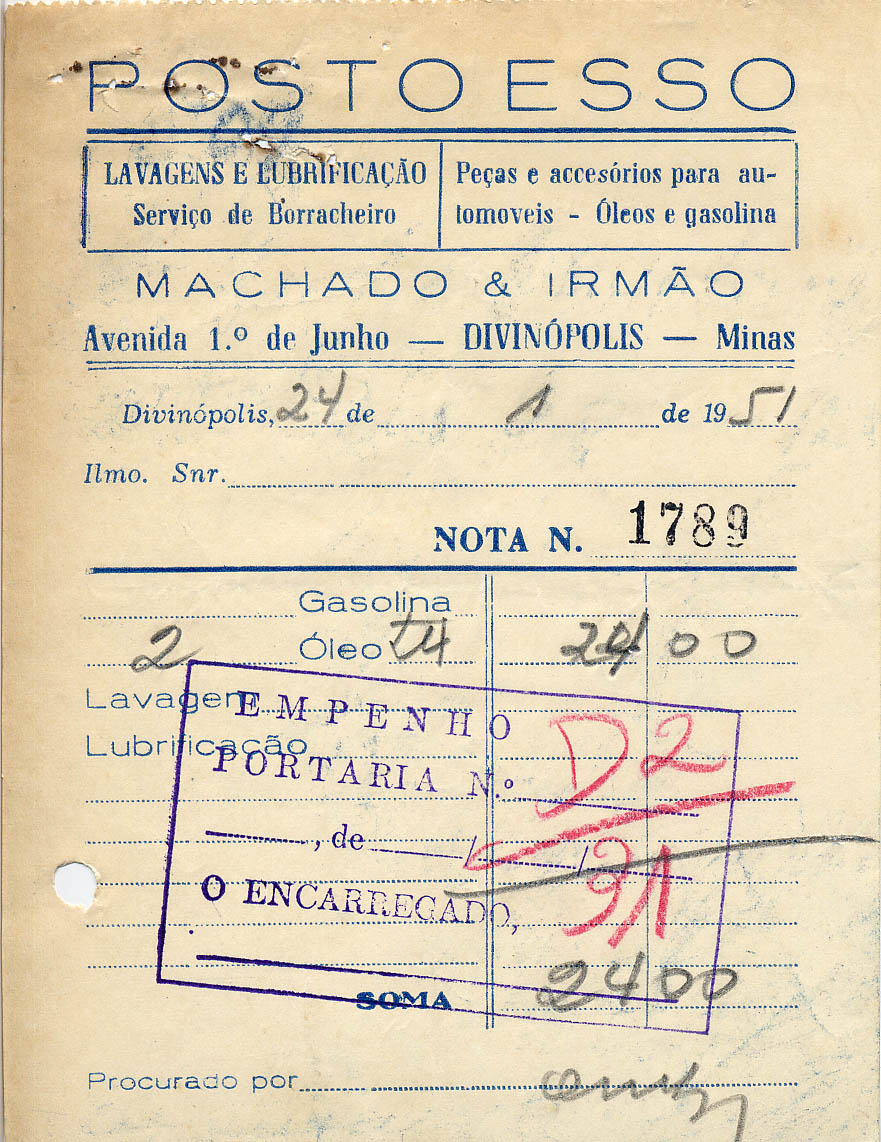 POSTO ESSO
LAVAGENS E LUBRIFICAÇÃO
Serviço de Borracheiro
Peças e accesórios para au-
tomoveis - Óleos e gasolina
MACHADO & IRMÃO
Avenida 1.º de Junho — DIVINÓPOLIS — Minas
Divinópolis, 24 de 1 de 1951
Ilmo. Snr.
NOTA N. 1789
Gasolina
2 Óleo 24 00
Lavagem
Lubrificação
EMPENHO
PORTARIA N.º D2
, de / /
31
O ENCARREGADO,
SOMA 24 00
Procurado por